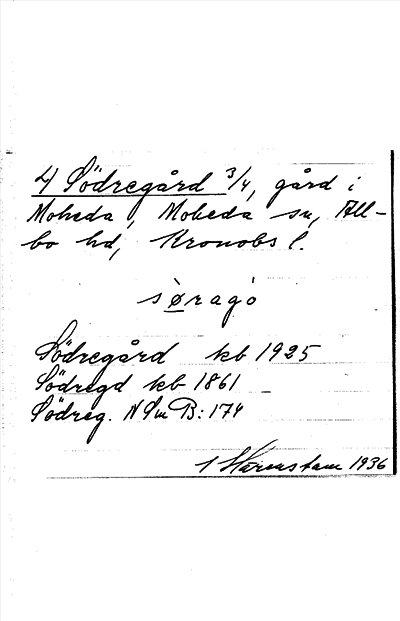 4) Södregård 3/4, gård i
Moheda, Moheda sn, All-
bo hd, Kronobs l.
sø̀ragò
Södregård kb 1925
Södregd kb 1861
Södreg. N Sm B: 174
1936